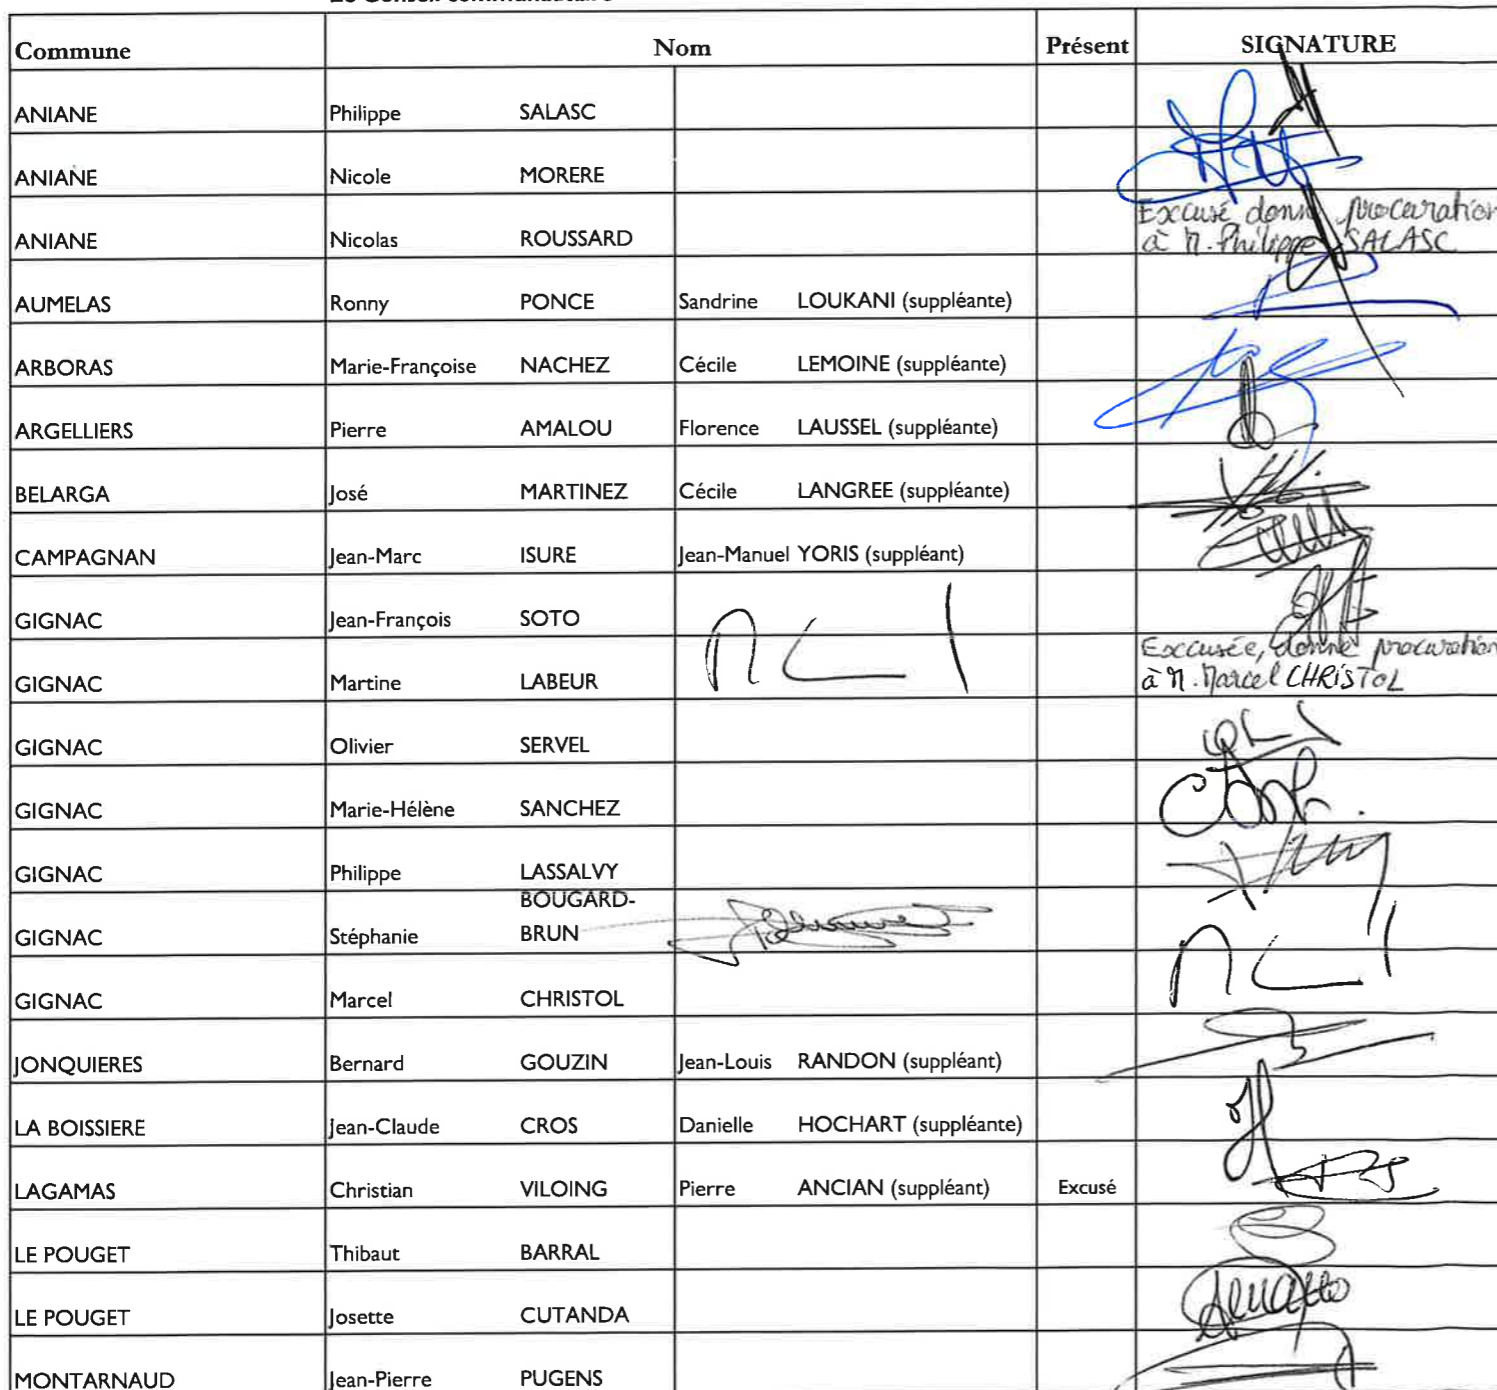 Commune Nom Présent SIGNATURE
ANIANE Philippe SALASC
ANIANE Nicole MORERE
ANIANE Nicolas ROUSSARD Excusé, donne procuration
à M. Philippe SALASC
AUMELAS Ronny PONCE Sandrine LOUKANI (suppléante)
ARBORAS Marie-Françoise NACHEZ Cécile LEMOINE (suppléante)
ARGELLIERS Pierre AMALOU Florence LAUSSEL (suppléante)
BELARGA José MARTINEZ Cécile LANGREE (suppléante)
CAMPAGNAN Jean-Marc ISURE Jean-Manuel YORIS (suppléant)
GIGNAC Jean-François SOTO
GIGNAC Martine LABEUR Excusée, donne procuration
à M. Marcel CHRISTOL
GIGNAC Olivier SERVEL
GIGNAC Marie-Hélène SANCHEZ
GIGNAC Philippe LASSALVY
GIGNAC Stéphanie BOUGARD-
BRUN
GIGNAC Marcel CHRISTOL
JONQUIERES Bernard GOUZIN Jean-Louis RANDON (suppléant)
LA BOISSIERE Jean-Claude CROS Danielle HOCHART (suppléante)
LAGAMAS Christian VILOING Pierre ANCIAN (suppléant) Excusé
LE POUGET Thibaut BARRAL
LE POUGET Josette CUTANDA
MONTARNAUD Jean-Pierre PUGENS